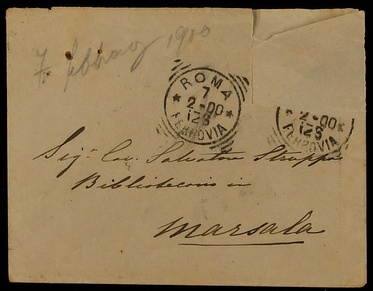 7 febbraio 1900
ROMA
7
2-00
12S
FERROVIA
2-00
12S
FERROVIA
Sigr Cav. Salvatore Struppa
Bibliotecario in
Marsala